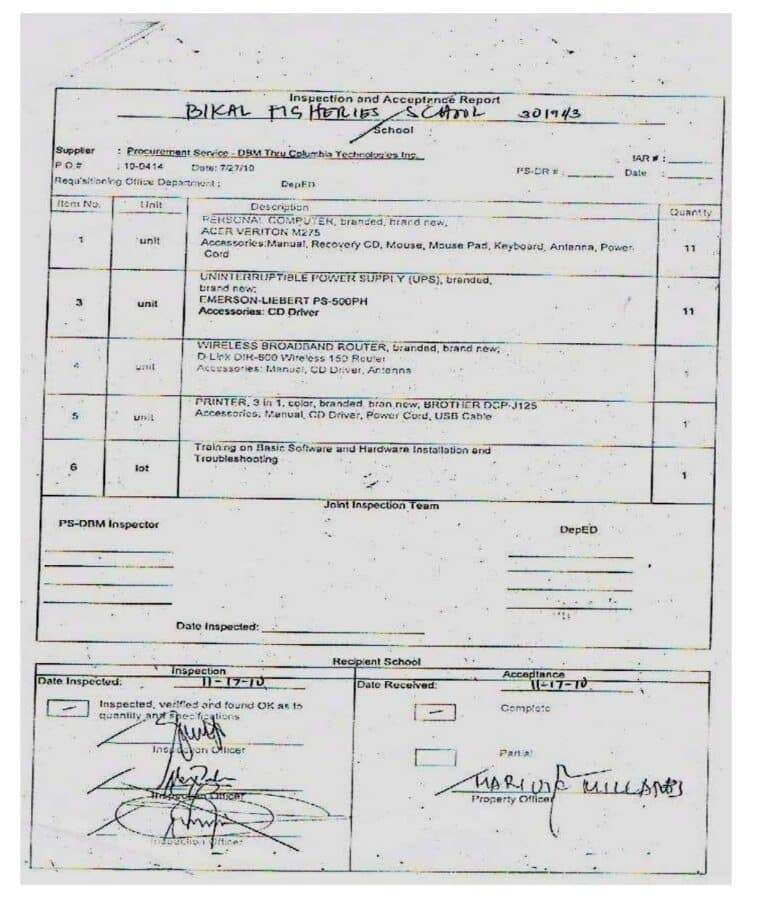 Inspection and Acceptance Report
BIKAL FISHERIES SCHOOL
School
Supplier : Procurement Service - DBM Thru Columbia Technologies Inc.
IAR # :
P.O.# : 10-0414 Date: 7/27/10
PS-DR # : Date :
Requisitioning Office Department : DepED
Item No. Unit Description Quantity
PERSONAL COMPUTER, branded, brand new,
ACER VERITON M275
1 unit Accessories:Manual, Recovery CD, Mouse, Mouse Pad, Keyboard, Antenna, Power 11
Cord
UNINTERRUPTIBLE POWER SUPPLY (UPS), branded,
brand new;
3 unit EMERSON-LIEBERT PS-500PH 11
Accessories: CD Driver
WIRELESS BROADBAND ROUTER, branded, brand new;
D-Link DIR-600 Wireless 150 Router
4 unit Accessories: Manual, CD Driver, Antenna 1
PRINTER, 3 in 1, color, branded, bran new, BROTHER DCP-J125
5 unit Accessories: Manual, CD Driver, Power Cord, USB Cable 1
Training on Basic Software and Hardware Installation and
6 lot Troubleshooting 1
Joint Inspection Team
PS-DBM Inspector DepED
Date Inspected:
Recipient School
Inspection Acceptance
Date Inspected: 11-17-10 Date Received: 11-17-10
Inspected, verified and found OK as to Complete
quantity and specifications
Inspection Officer Partial
Inspection Officer
Property Officer
Inspection Officer